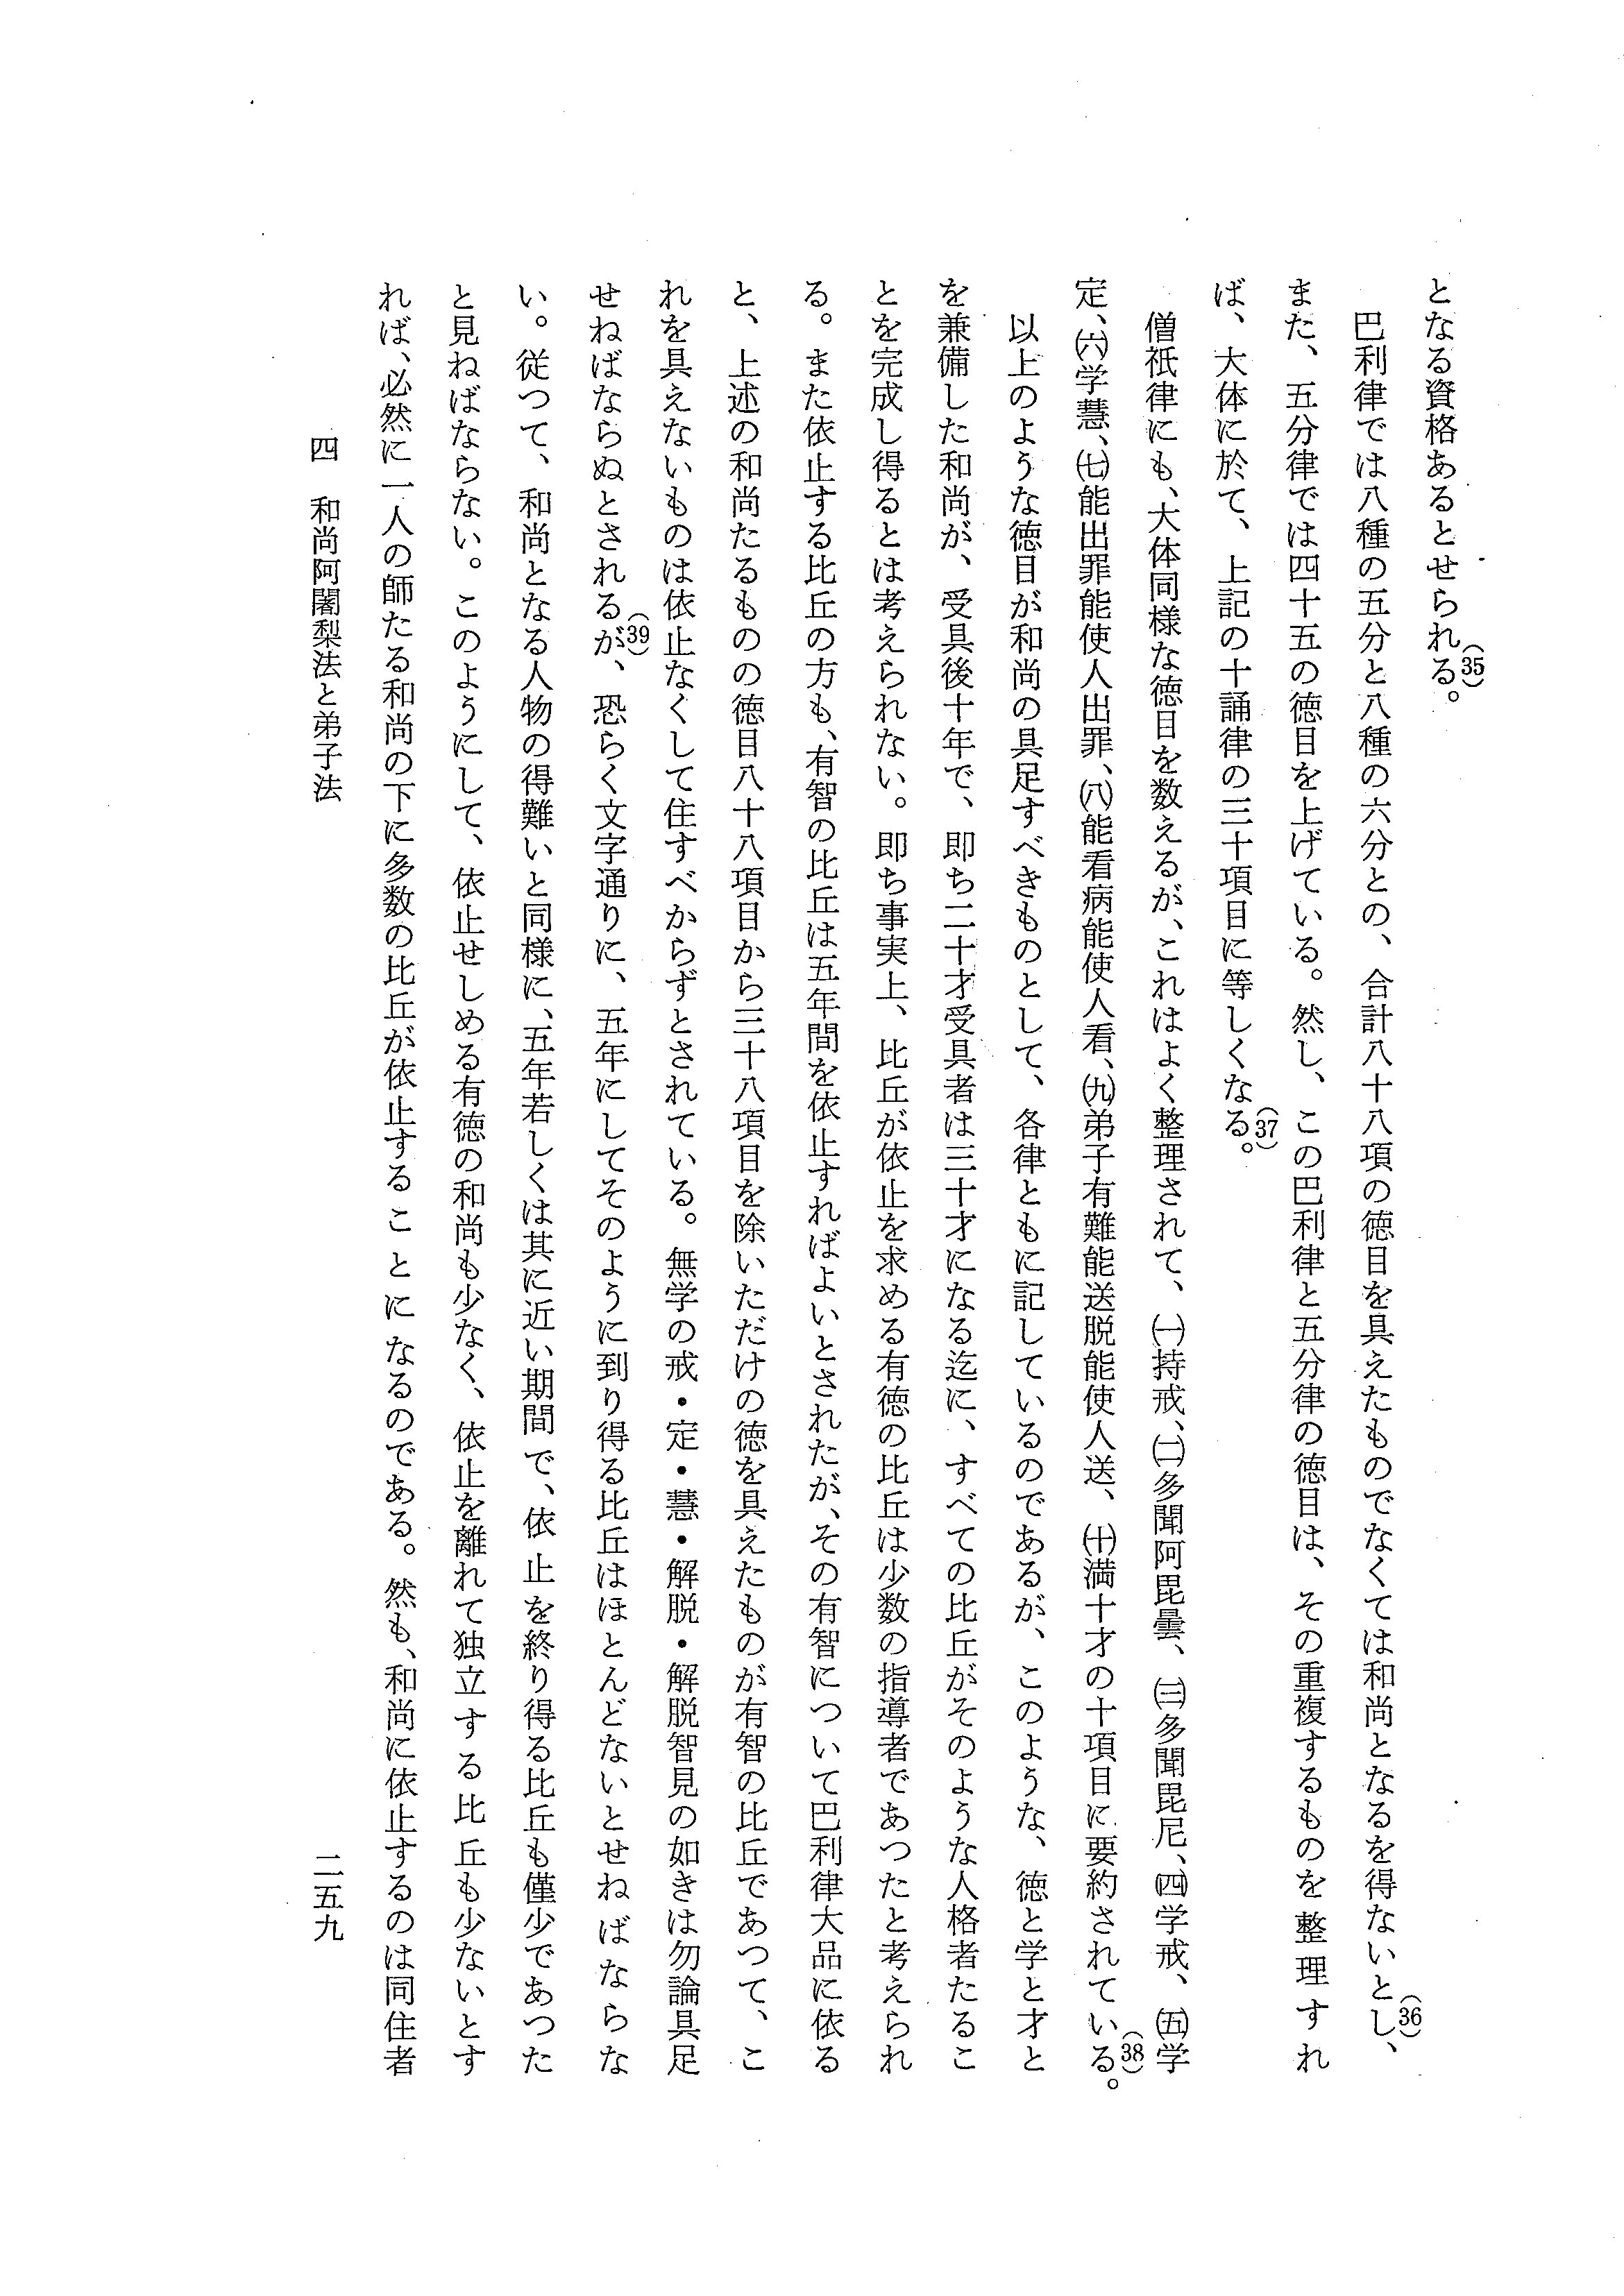 となる資格あるとせられる。(35)
巴利律では八種の五分と八種の六分との、合計八十八項の徳目を具えたものでなくては和尚となるを得ないとし、(36)
また、五分律では四十五の徳目を上げている。然し、この巴利律と五分律の徳目は、その重複するものを整理すれ
ば、大体に於て、上記の十誦律の三十項目に等しくなる。(37)
僧祇律にも、大体同様な徳目を数えるが、これはよく整理されて、㈠持戒、㈡多聞阿毘曇、㈢多聞毘尼、㈣学戒、㈤学
定、㈥学慧、㈦能出罪能使人出罪、㈧能看病能使人看、㈨弟子有難能送脱能使人送、㈩満十才の十項目に要約されている。(38)
以上のような徳目が和尚の具足すべきものとして、各律ともに記しているのであるが、このような、徳と学と才と
を兼備した和尚が、受具後十年で、即ち二十才受具者は三十才になる迄に、すべての比丘がそのような人格者たるこ
とを完成し得るとは考えられない。即ち事実上、比丘が依止を求める有徳の比丘は少数の指導者であつたと考えられ
る。また依止する比丘の方も、有智の比丘は五年間を依止すればよいとされたが、その有智について巴利律大品に依る
と、上述の和尚たるものの徳目八十八項目から三十八項目を除いただけの徳を具えたものが有智の比丘であつて、こ
れを具えないものは依止なくして住すべからずとされている。無学の戒・定・慧・解脱・解脱智見の如きは勿論具足
せねばならぬとされるが、(39)恐らく文字通りに、五年にしてそのように到り得る比丘はほとんどないとせねばならな
い。従つて、和尚となる人物の得難いと同様に、五年若しくは其に近い期間で、依止を終り得る比丘も僅少であつた
と見ねばならない。このようにして、依止せしめる有徳の和尚も少なく、依止を離れて独立する比丘も少ないとす
れば、必然に一人の師たる和尚の下に多数の比丘が依止することになるのである。然も、和尚に依止するのは同住者
四 和尚阿闍梨法と弟子法 二五九